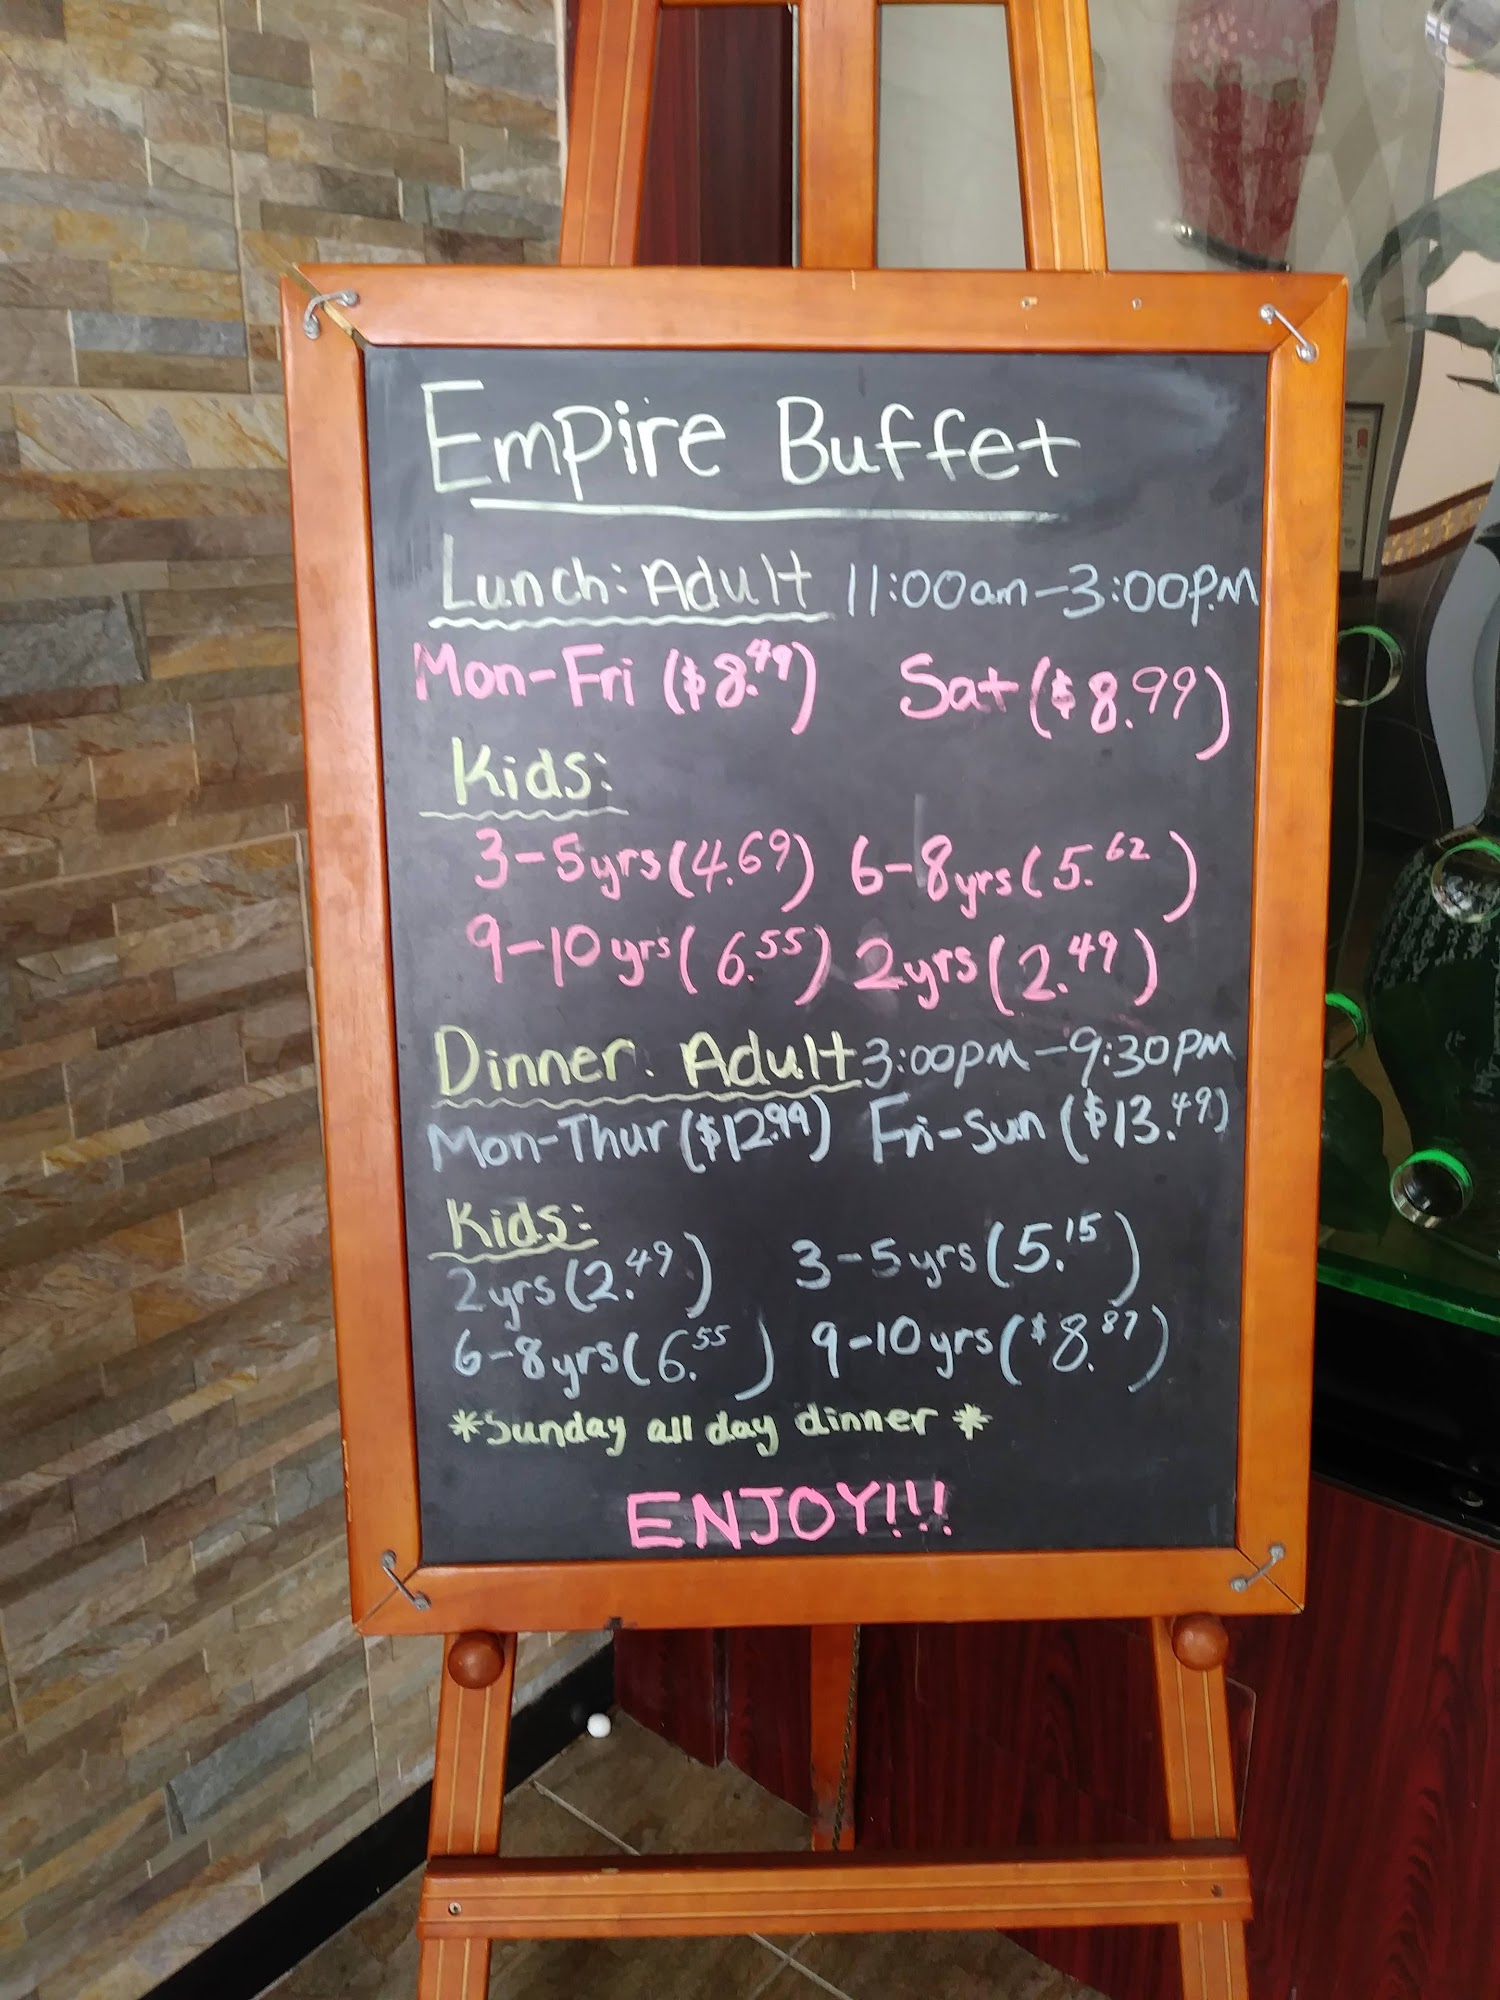 Empire Buffet
Lunch: Adult 11:00am-3:00P.M
Mon-Fri ($8.49) Sat ($8.99)
Kids:
3-5yrs (4.69) 6-8yrs (5.62)
9-10yrs (6.55) 2yrs (2.49)
Dinner: Adult 3:00pm-9:30PM
Mon-Thur ($12.99) Fri-Sun ($13.49)
Kids:
2yrs (2.49) 3-5yrs (5.15)
6-8yrs (6.55) 9-10yrs ($8.87)
*Sunday all day dinner*
ENJOY!!!